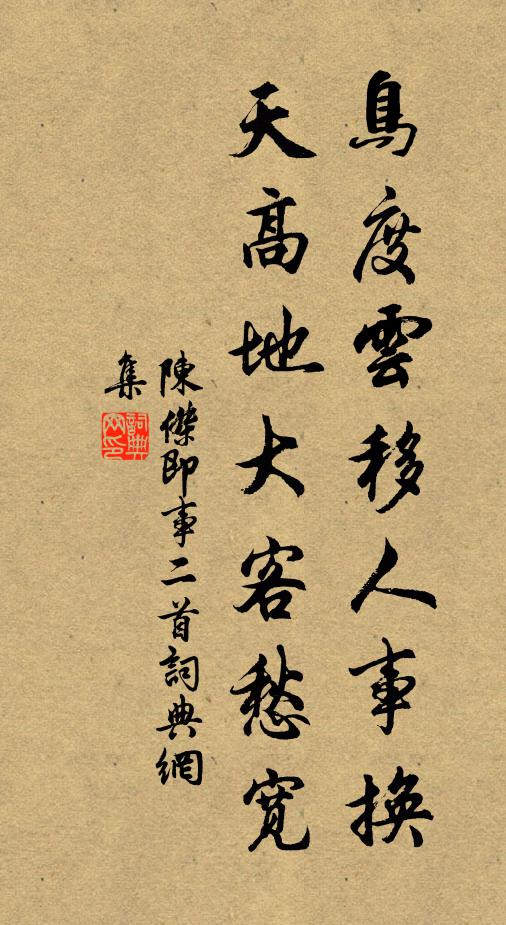 鳥度雲移人事換
天高地大客愁寬
陳傑即事二首詞典網
集
詞典網印